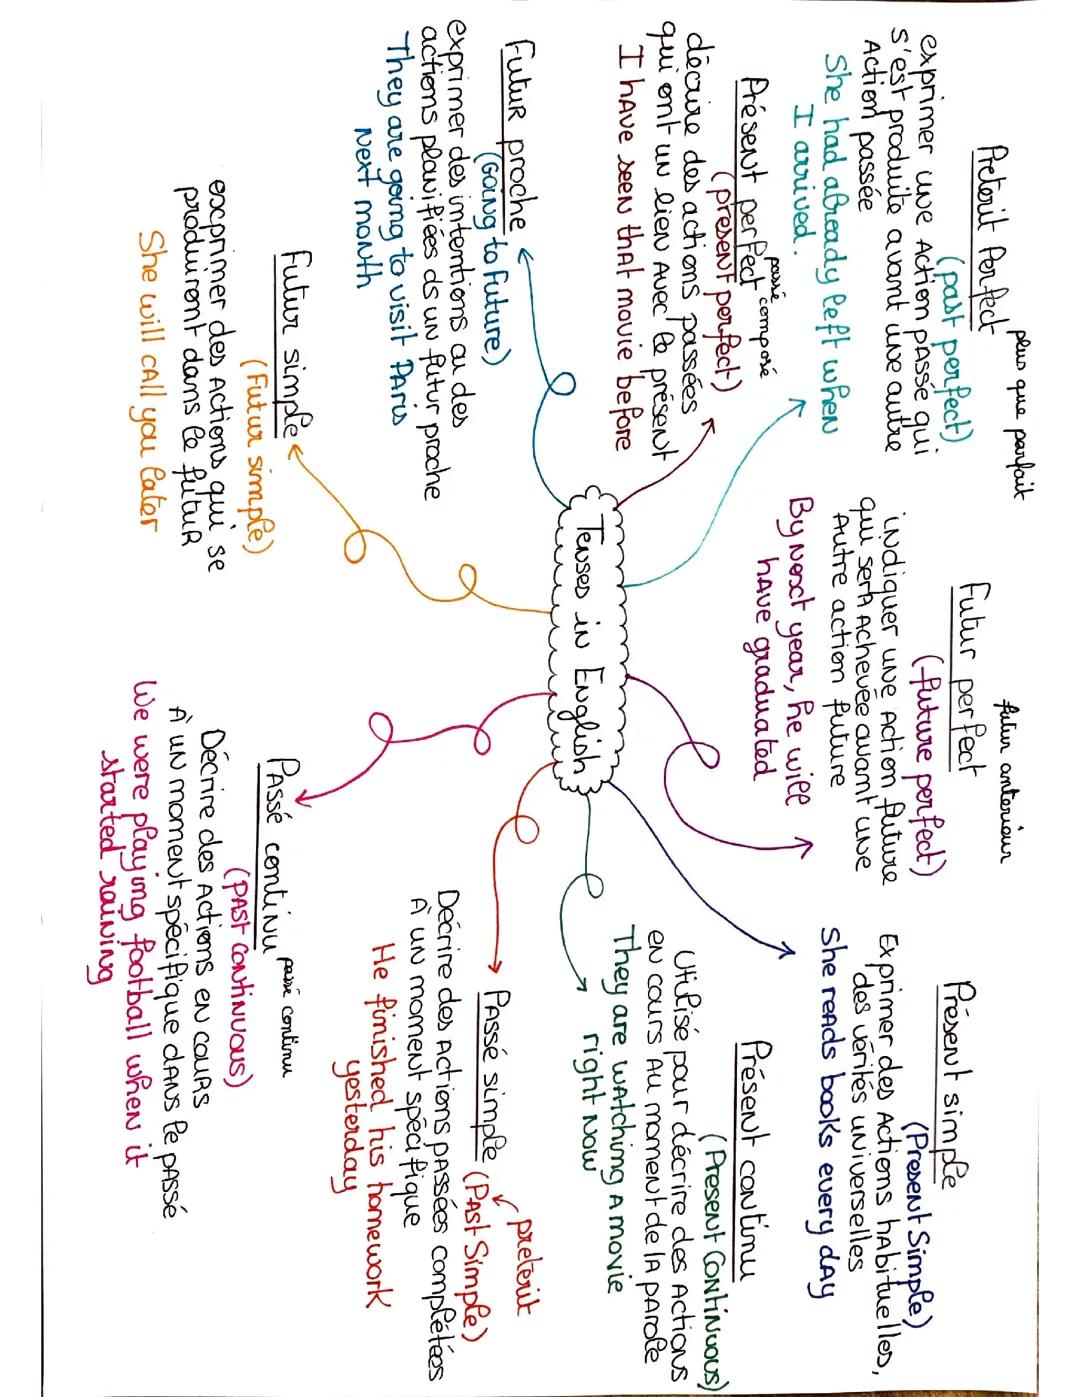 Tenses in English
plus que parfait
Preterit Perfect
(past perfect)
exprimer une Action pASSÉ qui
s'est produite avant une autre
Action passée
She had already left when
I arrived.
futur anterieur
Futur perfect
(future perfect)
indiquer une Action future
qui serA Achevée avant une
Autre action future
By Next year, he will
hAve graduated
Présent simple
(Present Simple)
Exprimer des Actions hAbituelles,
des vérités universelles
She reAds books every dAy
passé composé
Présent perfect
(present perfect)
décrire des actions passées
qui ont un lien Avec le présent
I hAve seen that movie before
Présent continu
(Present Continuous)
Utilisé pour décrire des Actions
en cours Au moment de lA pArole
They are wAtching A movie
right Now
Futur proche
(Going to Future)
exprimer des intentions ou des
actions planifiées ds un futur proche
They are going to visit PAris
Next month
preterit
PAssé simple (PASt Simple)
Décrire des Actions pAssées complétées
À un moment spécifique
He finished his homework
yesterday
Futur simple
(Futur simple)
exprimer des Actions qui se
produiront dans le futur
She will cAll you later
passé continu
PASSé continu
(PAST CONtiNuous)
Décrire des Actions en cours
À un moment spécifique dANS le pASSÉ
We were playing football when it
started raining